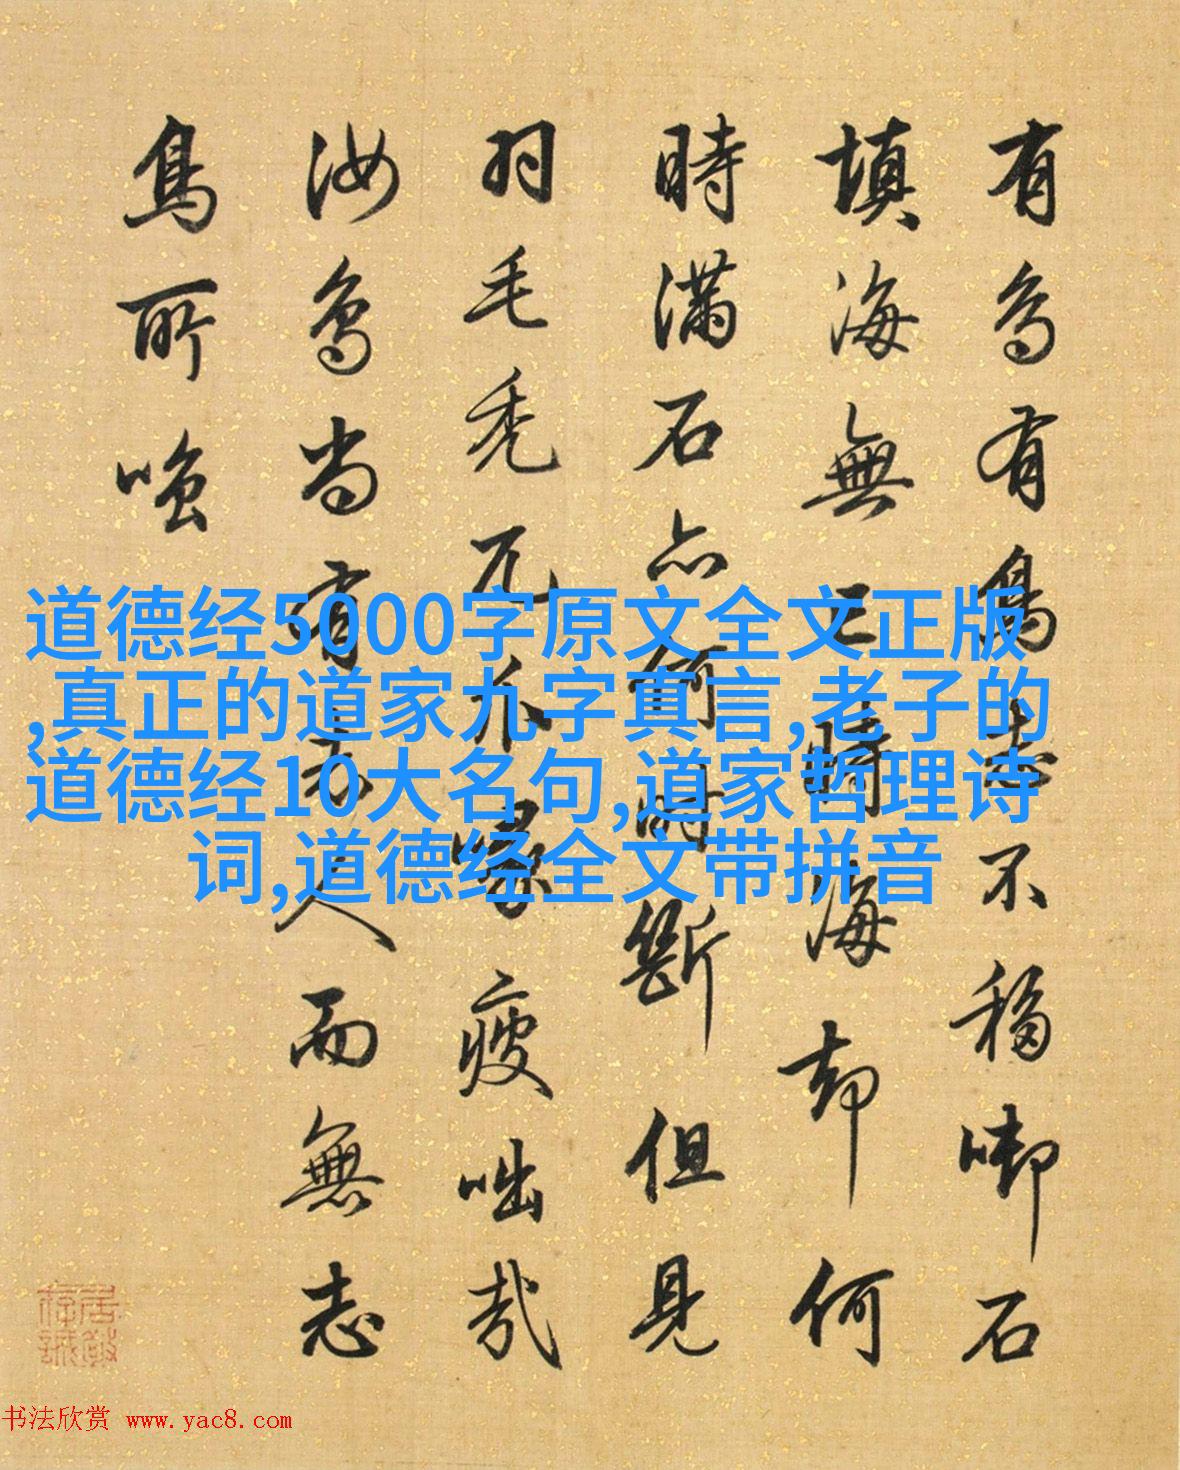 有鳥有鳥志不移啣石
填海無已時海却何
時滿石亦何時斷但見
羽毛秃爪喙疲咄哉
汝鳥尚有志人而無志
鳥所嗤
居敬
存誠
道德经5000字原文全文正版
,真正的道家九字真言,老子的
道德经10大名句,道家哲理诗
词,道德经全文带拼音
书法欣赏 www.yac8.com